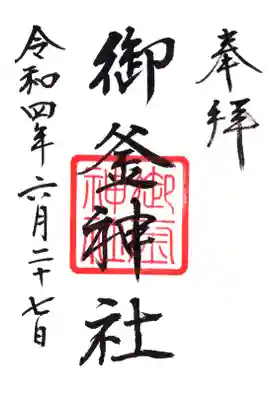 奉拝
御釜神社
御釜神社
令和四年六月二十七日